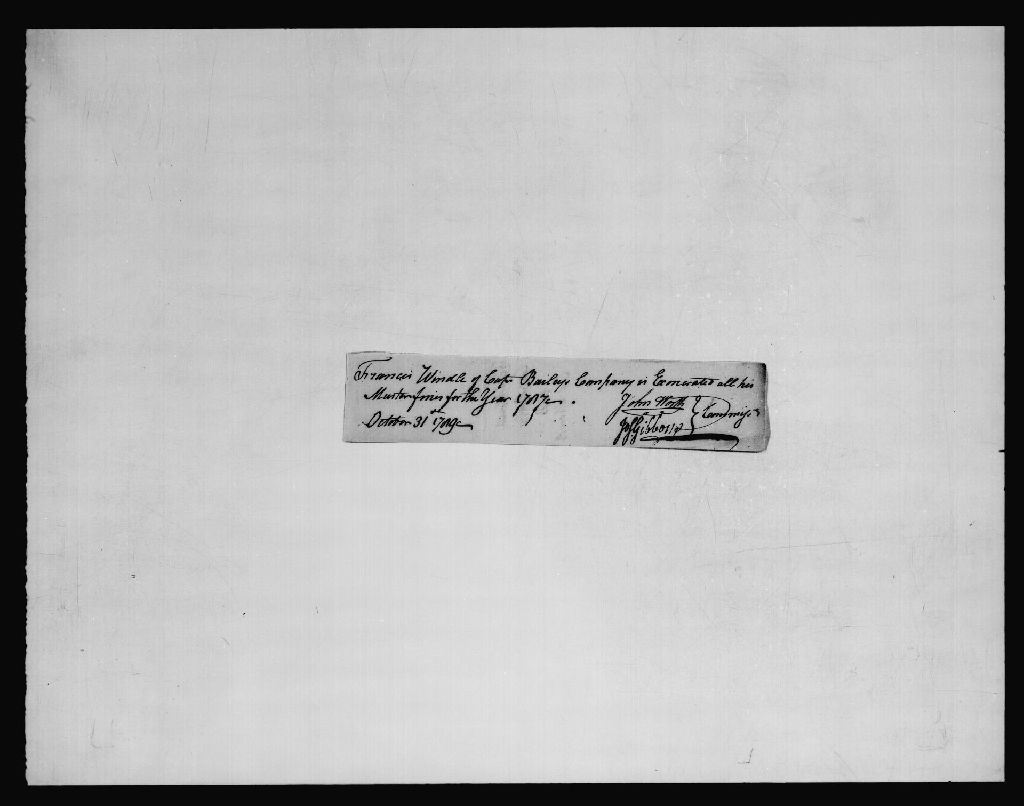 Francis Windle of Capt Baileys Company is Exonerated all his
Muster fines for the Year 1787
John Worth
October 31st 1789
Jos Gibbons
Commiss